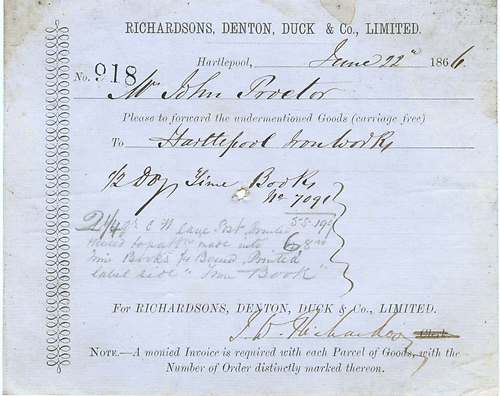 RICHARDSONS, DENTON, DUCK & Co., LIMITED.
Hartlepool, June 22 1866.
No. 918
Mr John Proctor
Please to forward the undermentioned Goods (carriage free)
To Hartlepool Iron Works
1/2 Doz Time Books
No 7091
made into
Books Bound, Printed
label side " Time Book"
For RICHARDSONS, DENTON, DUCK & Co., LIMITED.
Richardson Clerk
NOTE.—A monied Invoice is required with each Parcel of Goods, with the
Number of Order distinctly marked thereon.